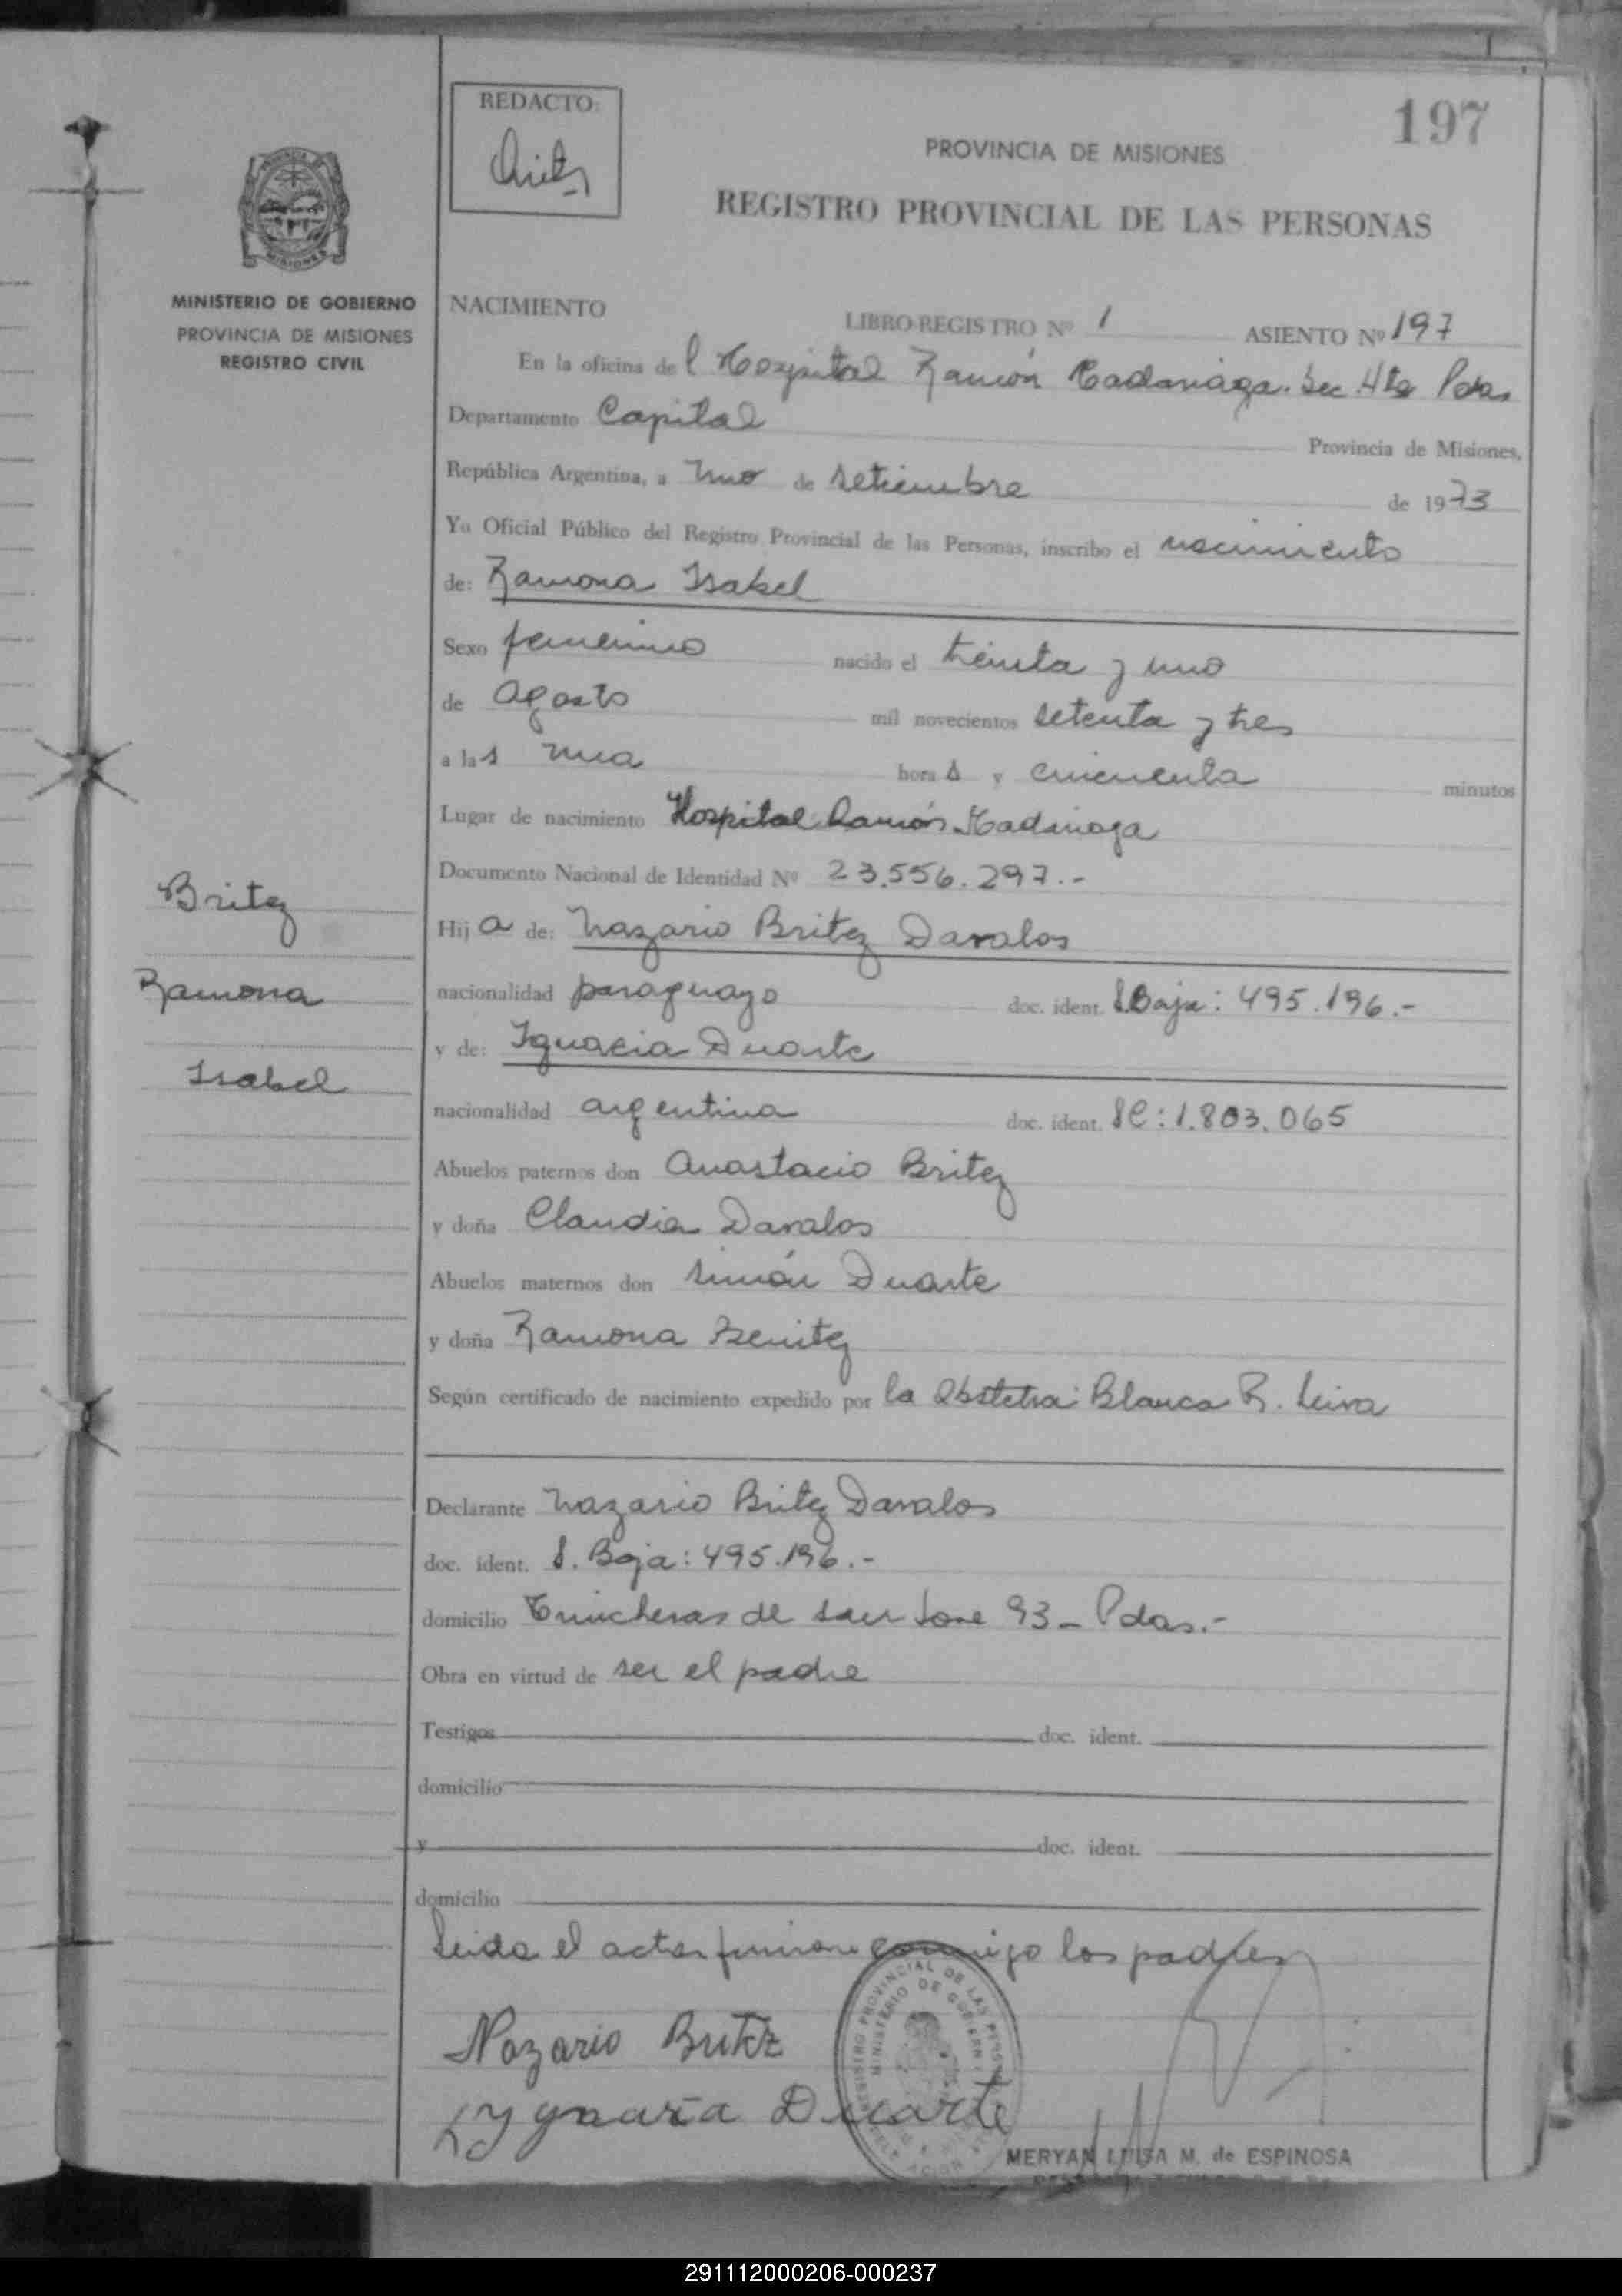 197
REDACTO:
PROVINCIA DE MISIONES
REGISTRO PROVINCIAL DE LAS PERSONAS
PROVINCIA DE
MISIONES
MINISTERIO DE GOBIERNO
PROVINCIA DE MISIONES
REGISTRO CIVIL
NACIMIENTO
LIBRO-REGISTRO Nº 1 ASIENTO Nº 197
En la oficina del Hospital Ramón Madariaga. Sec. Pdas
Departamento Capital Provincia de Misiones,
República Argentina, a uno de setiembre de 1973
Yo Oficial Público del Registro Provincial de las Personas, inscribo el nacimiento
de: Ramona Isabel
Sexo femenino nacido el treinta y uno
de agosto mil novecientos setenta y tres
a las una horas y cincuenta minutos
Lugar de nacimiento Hospital Ramón Madariaga
Documento Nacional de Identidad Nº 23.556.297.-
Britez
Ramona
Isabel
Hija de: Nazario Britez Davalos
nacionalidad paraguayo doc. ident. S.Baja: 495.196.-
y de: Ignacia Duarte
nacionalidad argentina doc. ident. LC: 1.803.065
Abuelos paternos don Anastacio Britez
y doña Claudia Davalos
Abuelos maternos don Simón Duarte
y doña Ramona Benitez
Según certificado de nacimiento expedido por la Obstetra: Blanca R. Leiva
Declarante Nazario Britez Davalos
doc. ident. S. Baja: 495.196.-
domicilio Trincheras de San Jose 93- Pdas.-
Obra en virtud de ser el padre
Testigos doc. ident.
domicilio
y doc. ident.
domicilio
Leida el acta firman conmigo los padres
Nazario Britez
Ygnacia Duarte
REGISTRO PROVINCIAL DE LAS PERSONAS
MINISTERIO DE GOBIERNO
MERYAN LUISA M. de ESPINOSA
291112000206-000237